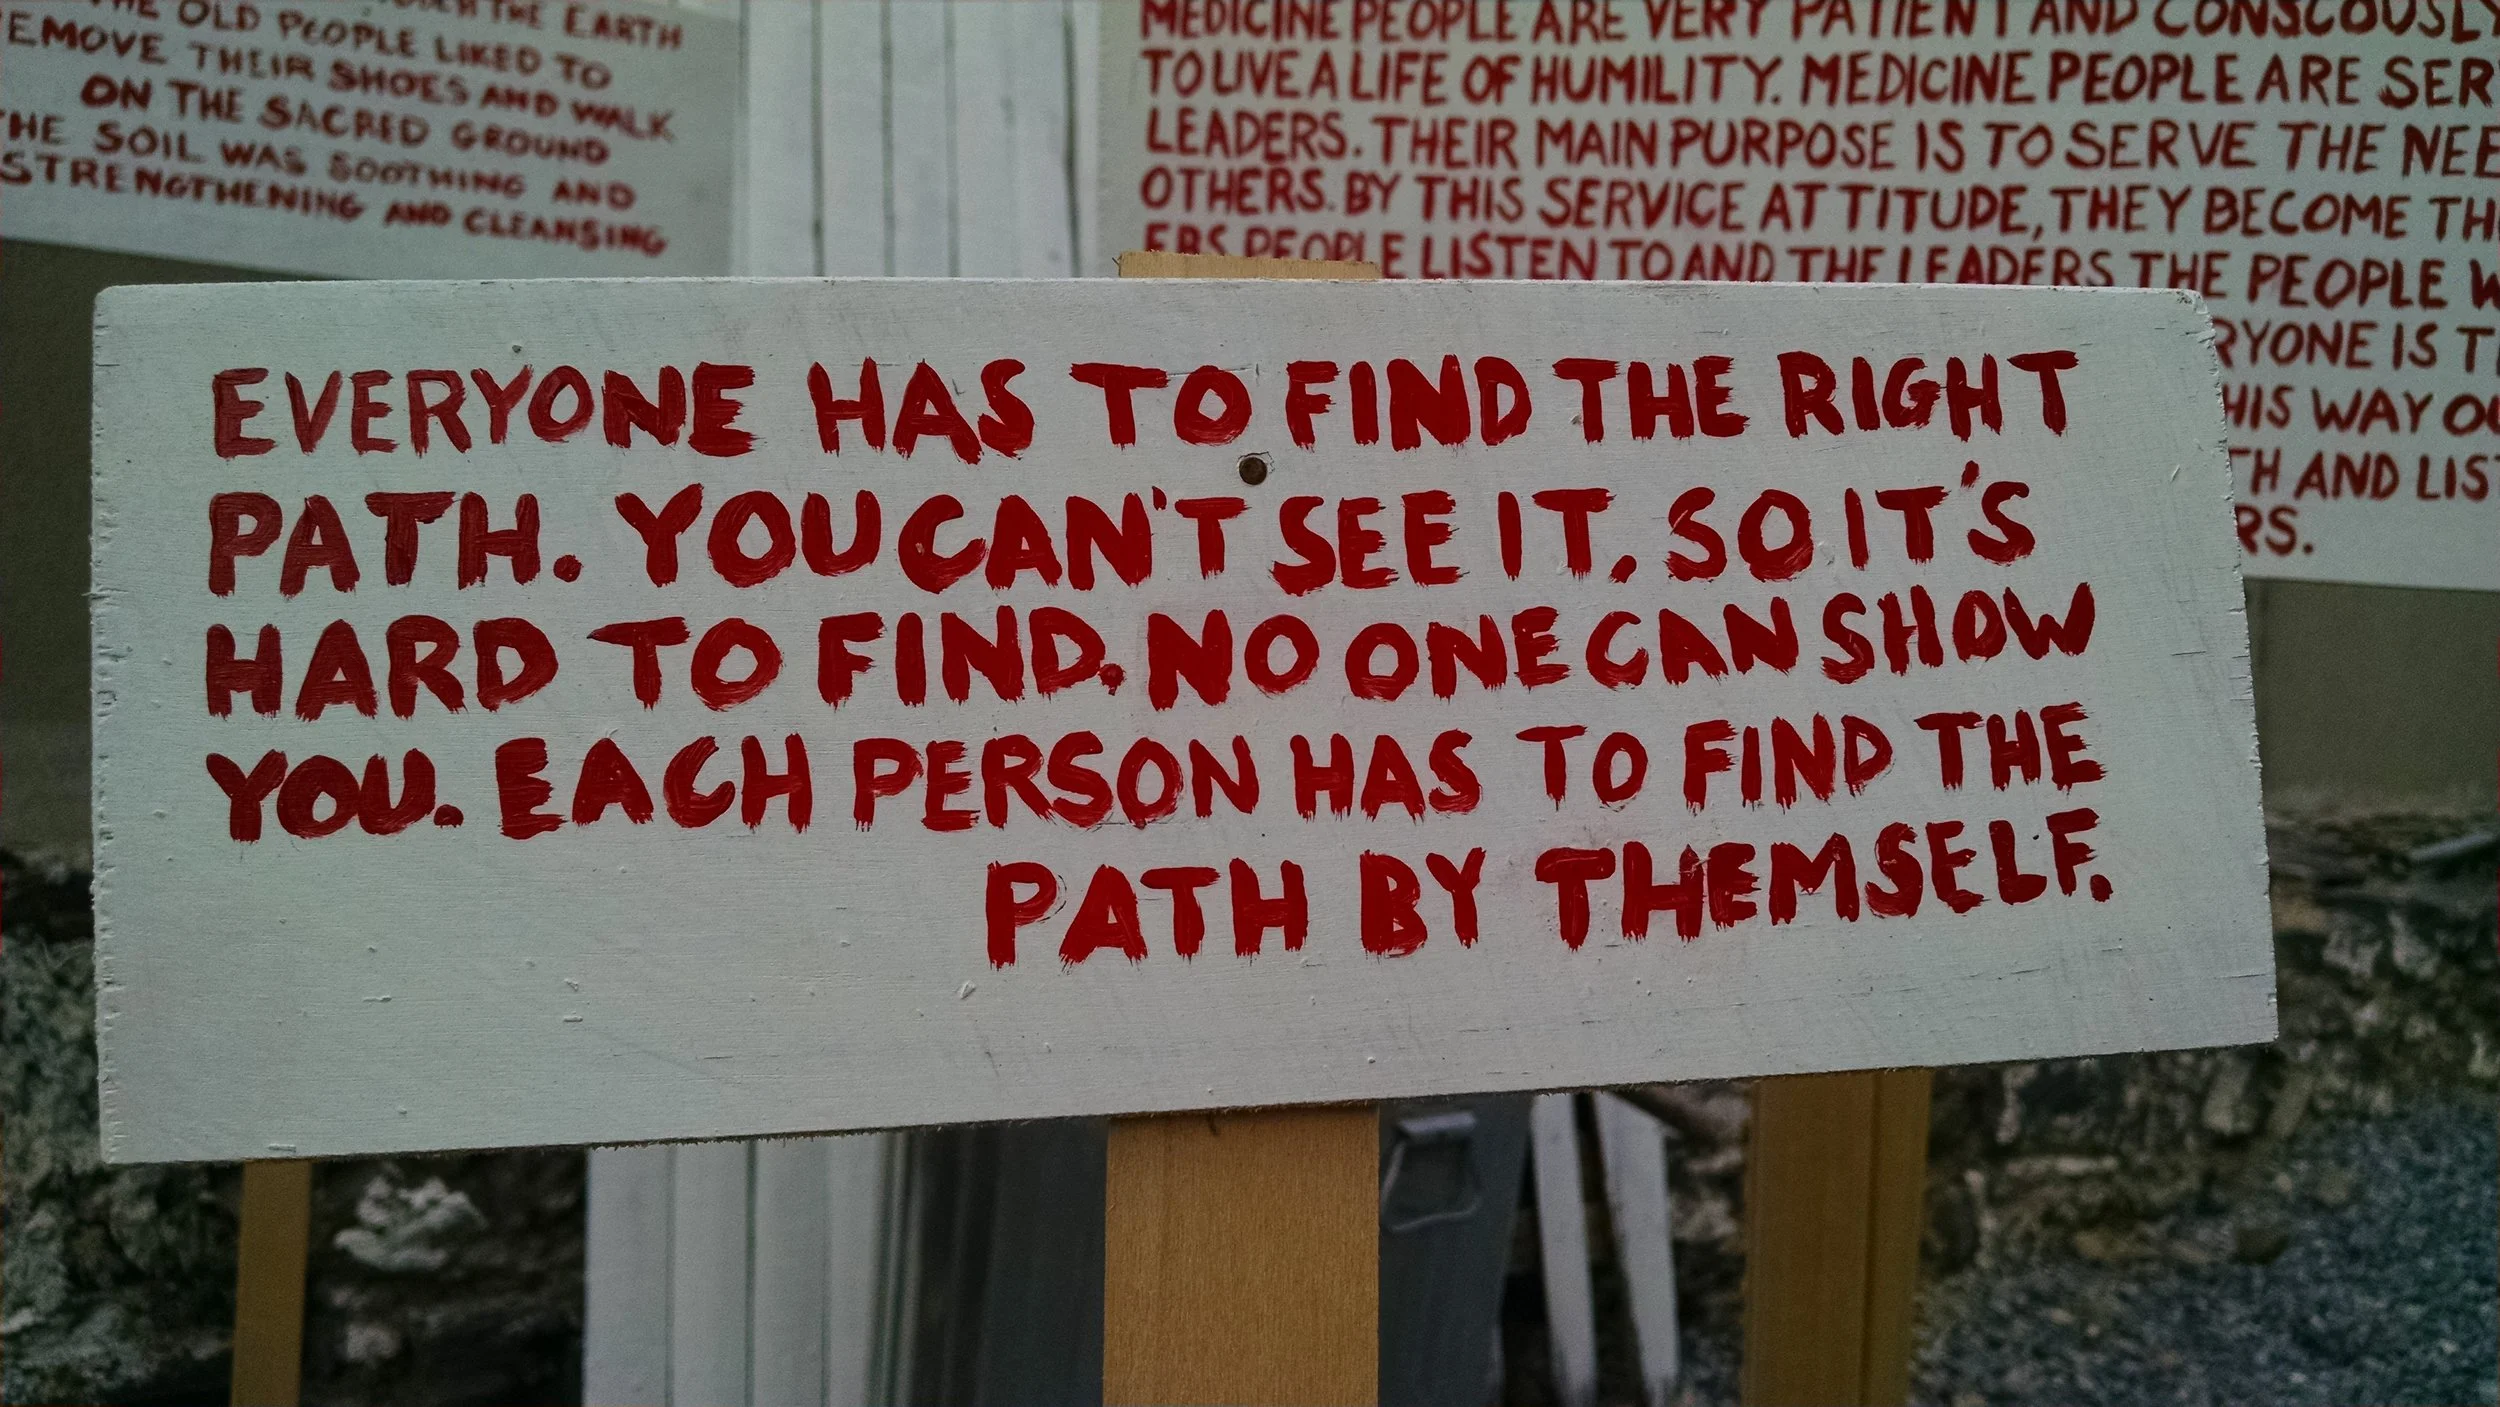 OLD PEOPLE LIKED TO
THEIR SHOES AND WALK
ON THE SACRED GROUND
THE SOIL WAS SOOTHING AND
STRENGTHENING AND CLEANSING
MEDICINE PEOPLE ARE VERY PATIENT AND CONSCOUSLY
TO LIVE A LIFE OF HUMILITY. MEDICINE PEOPLE ARE SER
LEADERS. THEIR MAIN PURPOSE IS TO SERVE THE NEE
OTHERS. BY THIS SERVICE ATTITUDE, THEY BECOME TH
ERS PEOPLE LISTEN TO AND THE LEADERS THE PEOPLE W
RYONE IS T
HIS WAY OU
TH AND LIS
RS.
EVERYONE HAS TO FIND THE RIGHT
PATH. YOU CAN'T SEE IT. SO IT'S
HARD TO FIND. NO ONE CAN SHOW
YOU. EACH PERSON HAS TO FIND THE
PATH BY THEMSELF.